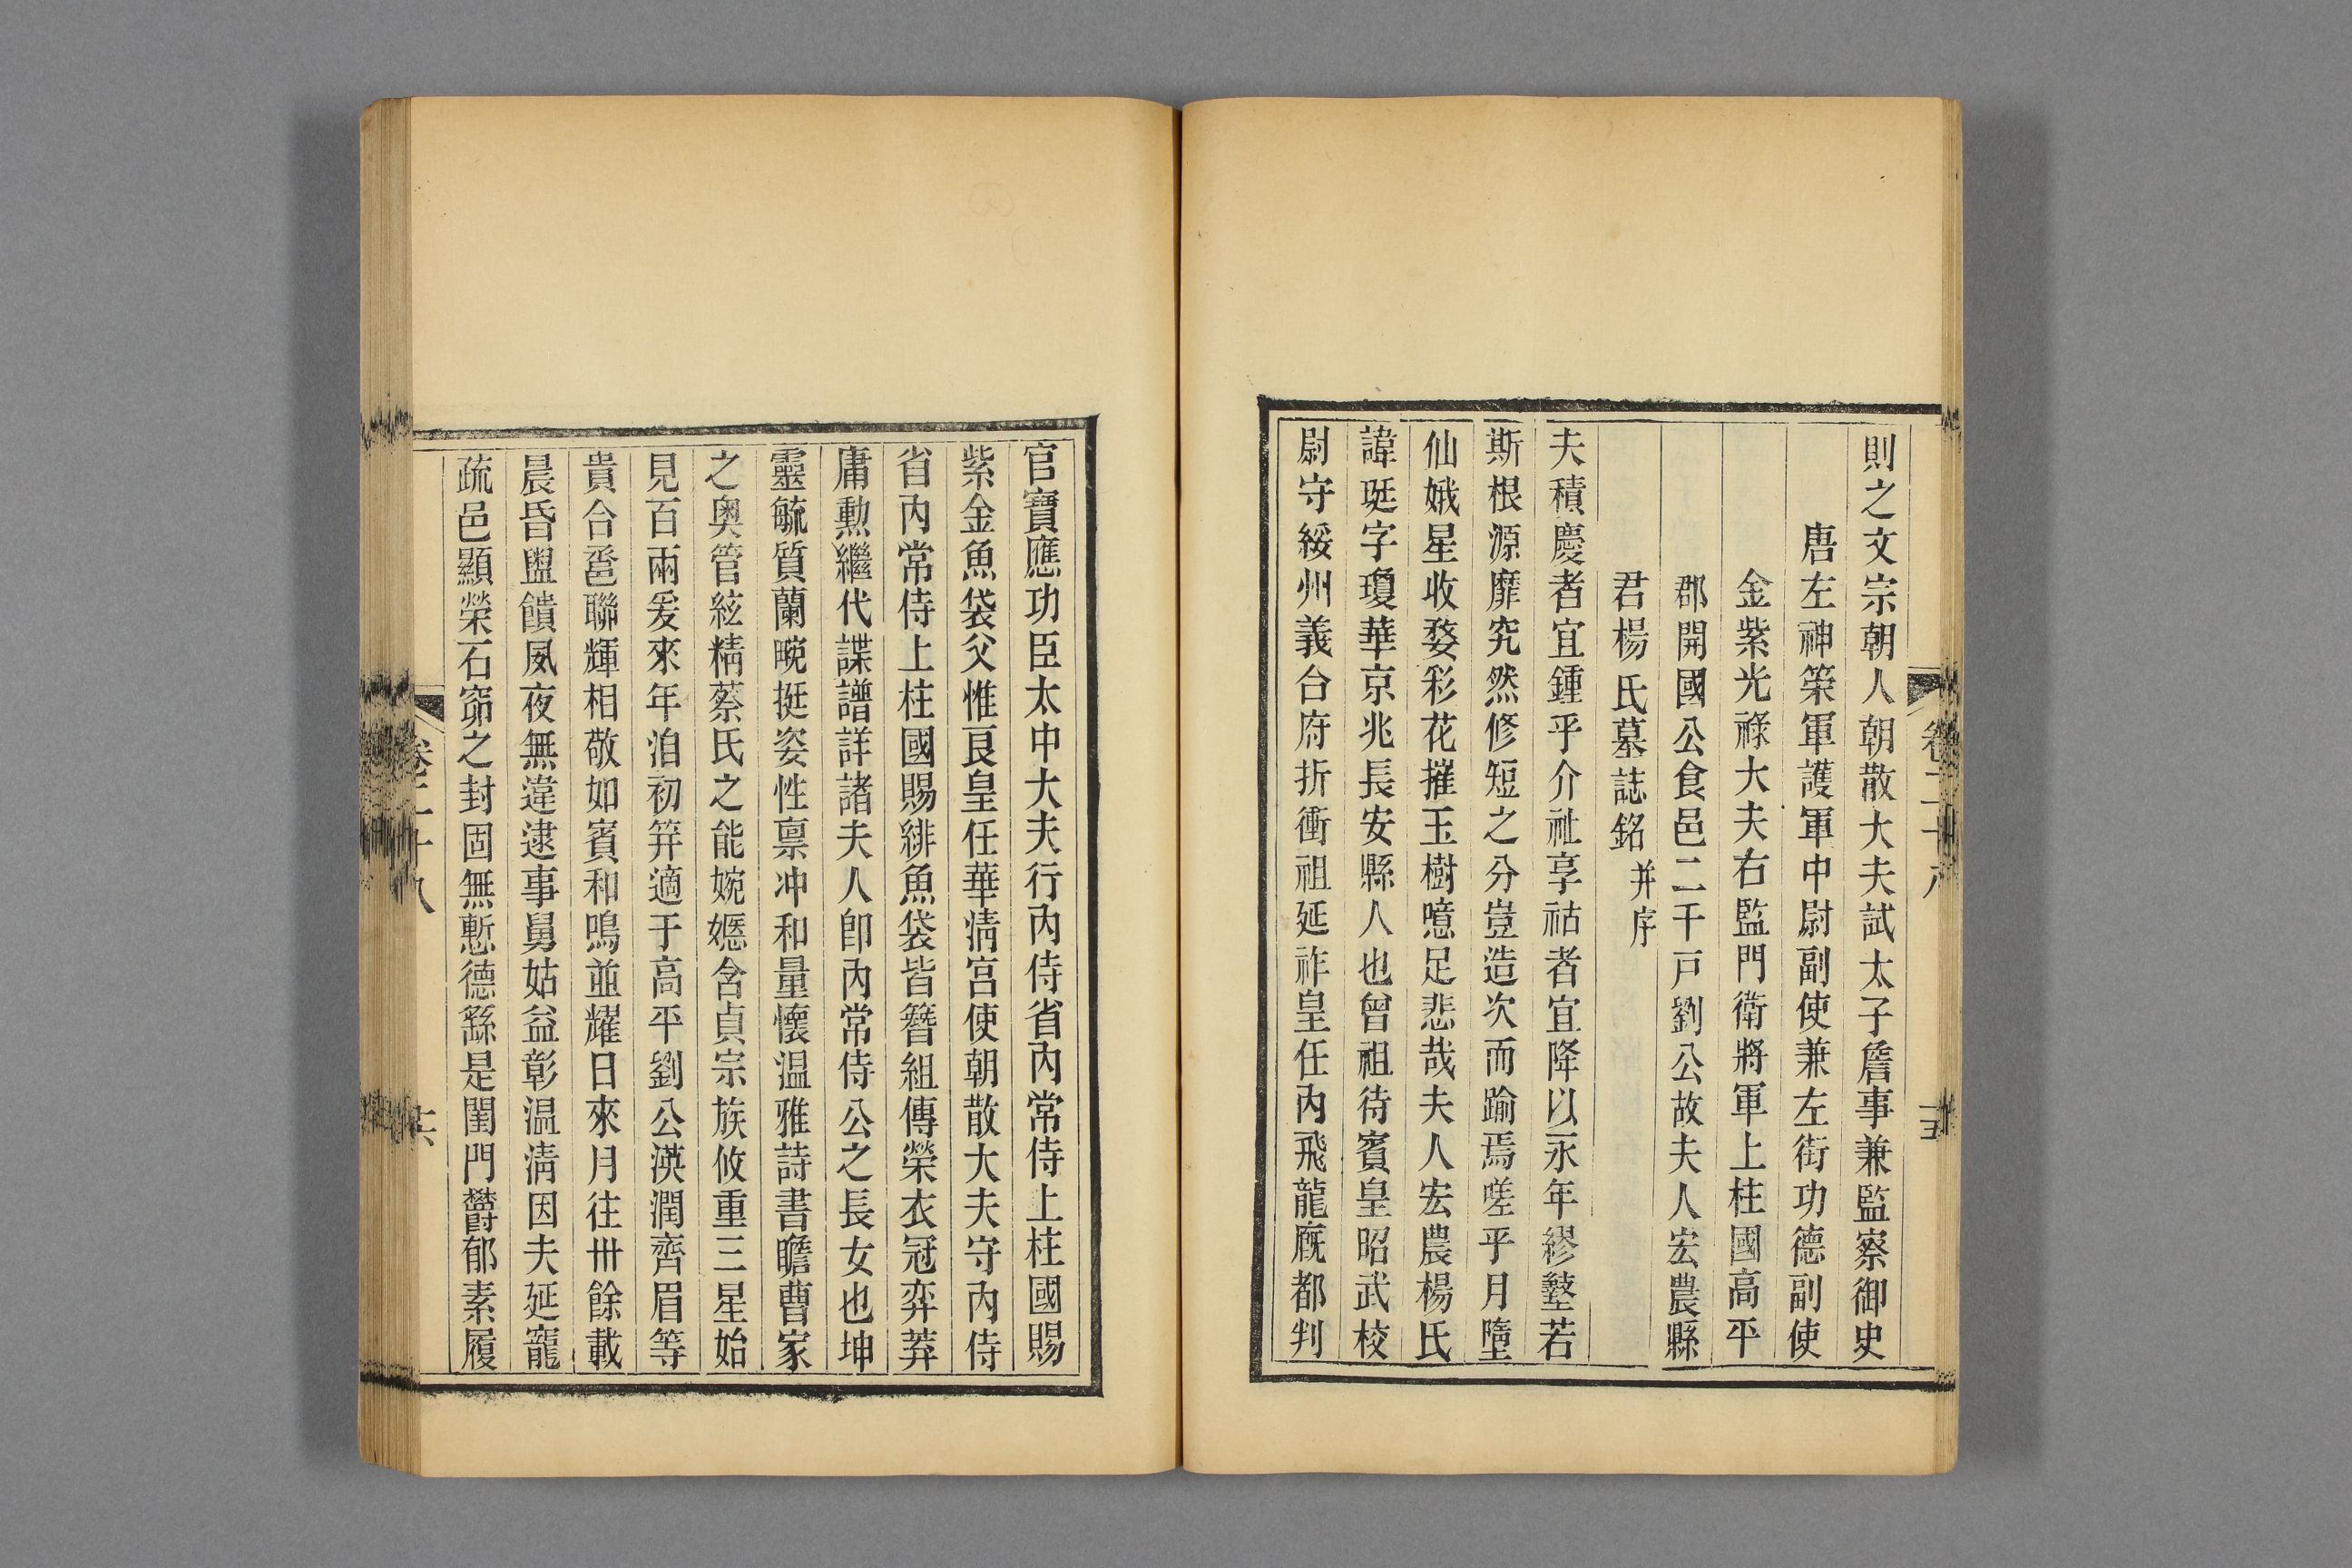 則之文宗朝人朝散大夫試太子詹事兼監察御史
唐左神策軍護軍中尉副使兼左街功德副使
金紫光祿大夫右監門衛將軍上柱國高平
郡開國公食邑二千戸劉公故夫人宏農縣
君楊氏墓誌銘并序
夫積慶者宜鍾乎介祉享祜者宜降以永年繆盭若
斯根源靡究然修短之分豈造次而踰焉嗟乎月墮
仙娥星收婺彩花摧玉樹噫足悲哉夫人宏農楊氏
諱珽字瓊華京兆長安縣人也曾祖待賓皇昭武校
尉守綏州義合府折衝祖延祚皇任內飛龍廐都判
官寶應功臣太中大夫行內侍省內常侍上柱國賜
紫金魚袋父惟良皇任華清宮使朝散大夫守內侍
省內常侍上柱國賜緋魚袋皆簪組傳榮衣冠弈莽
庸勳繼代諜譜詳諸夫人卽內常侍公之長女也坤
靈毓質蘭畹挺姿性禀沖和量懷温雅詩書瞻曹家
之奧管絃精蔡氏之能婉嫕含貞宗族攸重三星始
見百兩爰來年洎初笄適于高平劉公渶潤齊眉等
貴合巹聯輝相敬如賓和鳴並耀日來月往卅餘載
晨昏盥饋夙夜無違逮事舅姑益彰温凊因夫延寵
疏邑顯榮石窌之封固無慙德繇是閨門欝郁素履
卷二十八
十五
卷二十八
十六